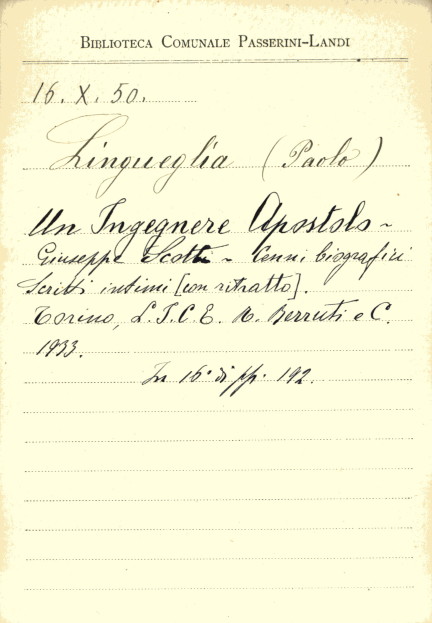 BIBLIOTECA COMUNALE PASSERINI-LANDI
16. X. 50.
Lingueglia (Paolo)
Un Ingegnere Apostolo -
Giuseppe Scotti - Cenni biografici
Scritti intimi [con ritratto].
Torino, L.I.C.E. R. Berruti e C.
1933.
In 16° di pp. 192.